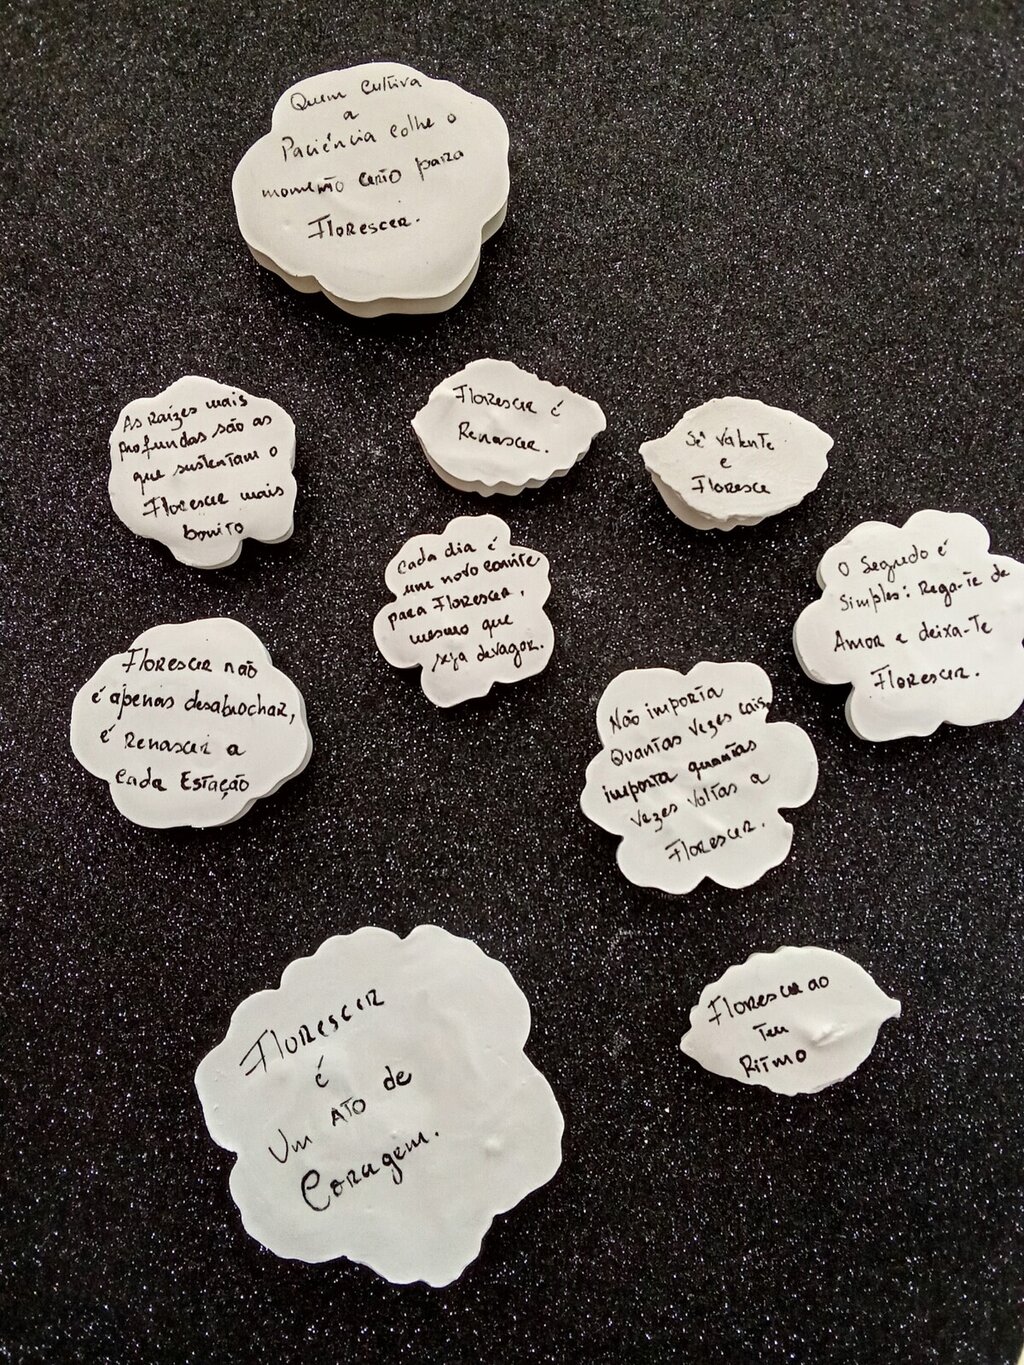 Quem cultiva
a
Paciência colhe o
momento certo para
Florescer.
As raízes mais
profundas são as
que sustentam o
Florescer mais
bonito
Florescer é
Renascer.
Sê Valente
e
Floresce
Cada dia é
um novo convite
para Florescer,
mesmo que
seja devagar.
O Segredo é
Simples: Rega-te de
Amor e deixa-Te
Florescer.
Florescer não
é apenas desabrochar,
é renascer a
Cada Estação
Não importa
Quantas vezes cais,
importa quantas
vezes voltas a
Florescer.
Florescer
é
Um ATO de
Coragem.
Florescer ao
Teu
Ritmo